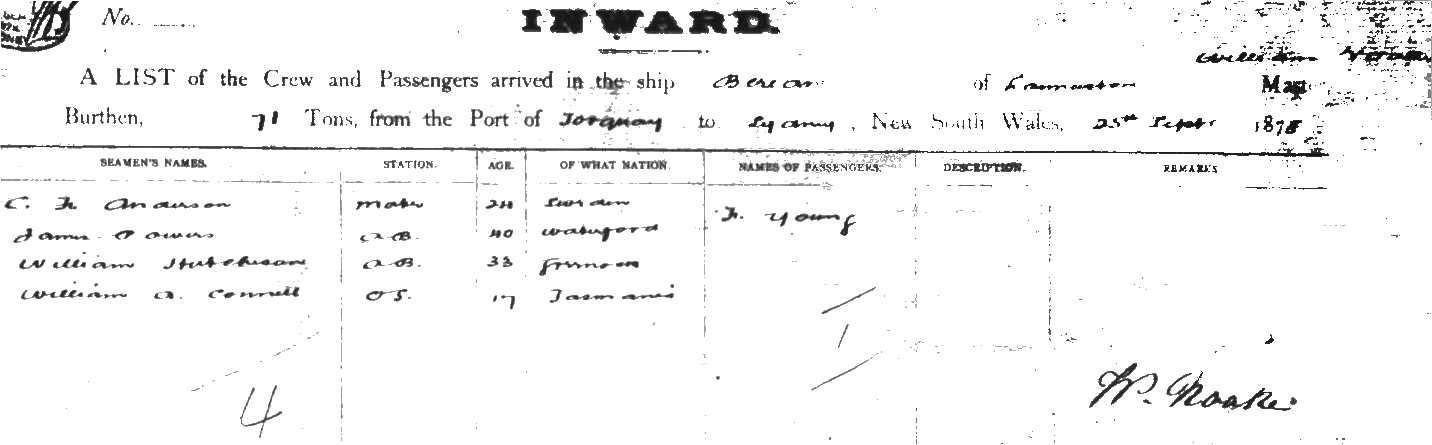 No.
INWARD.
William
A LIST of the Crew and Passengers arrived in the ship Berean of Launceston Mast
Burthen, 71 Tons, from the Port of Torquay to Sydney, New South Wales, 25th Septr 1878
SEAMEN'S NAMES. STATION. AGE. OF WHAT NATION. NAMES OF PASSENGERS. DESCRIPTION. REMARKS
C. Fr Anderson Mate 24 Sweden Fr. Young
James Powers A.B. 40 Waterford
William Hutchison A.B. 33
William A. Connell OS. 17 Tasmania
1
4